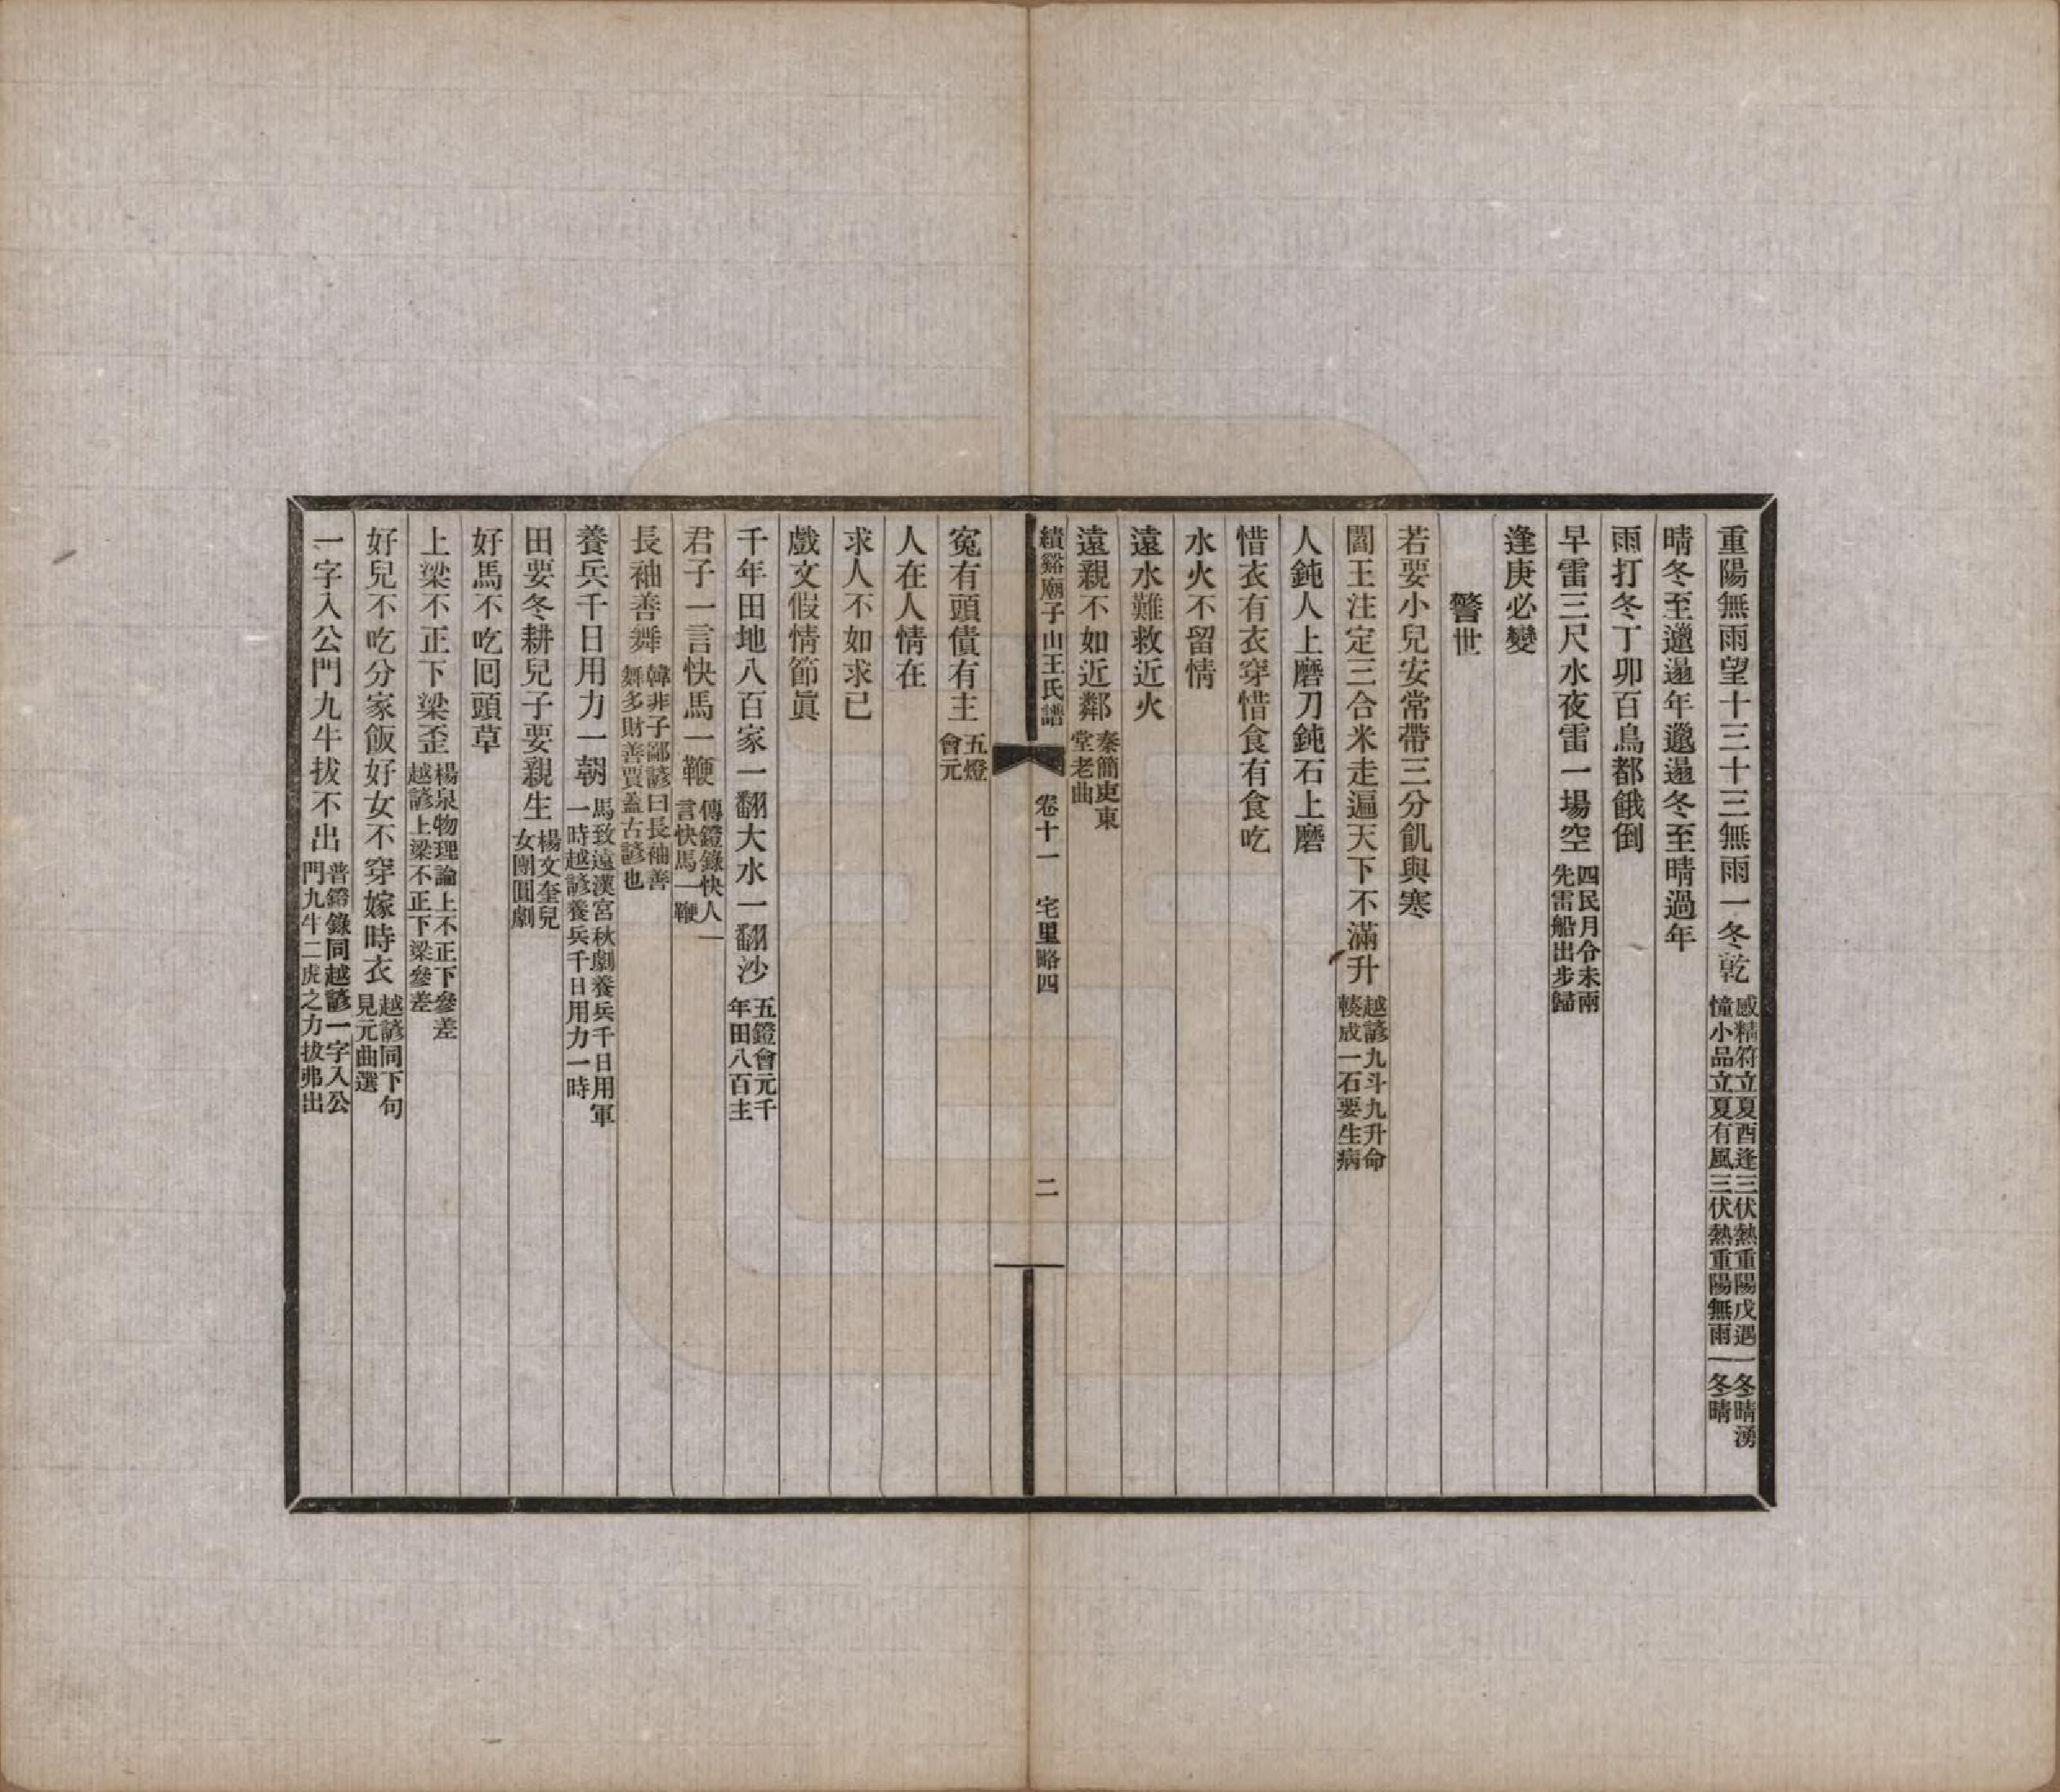 重陽無雨望十三十三無雨一冬乾 感精符立夏酉逢三伏熱重陽戊遇一冬晴湧幢小品立夏有風三伏熱重陽無雨一冬晴
晴冬至邋遢年邋遢冬至晴過年
雨打冬丁卯百鳥都餓倒
早雷三尺水夜雷一場空 四民月令未雨先雷船出步歸
逢庚必變
警世
若要小兒安常帶三分飢與寒
閻王注定三合米走遍天下不滿升 越諺九斗九升命輳成一石要生病
人鈍人上磨刀鈍石上磨
惜衣有衣穿惜食有食吃
水火不留情
遠水難救近火
遠親不如近鄰 秦簡吏東堂老曲
績谿廟子山王氏譜 卷十一 宅里略四 二
冤有頭債有主 五燈會元
人在人情在
求人不如求己
戲文假情節眞
千年田地八百家一翻大水一翻沙 五鐙會元千年田八百主
君子一言快馬一鞭 傳鐙錄快人一言快馬一鞭
長袖善舞 韓非子鄙諺曰長袖善舞多財善賈蓋古諺也
養兵千日用力一朝 馬致遠漢宮秋劇養兵千日用軍一時越諺養兵千日用力一時
田要冬耕兒子要親生 楊文奎兒女團圓劇
好馬不吃囘頭草
上梁不正下梁歪 楊泉物理論上不正下參差越諺上梁不正下梁參差
好兒不吃分家飯好女不穿嫁時衣 越諺同下句見元曲選
一字入公門九牛拔不出 普鐙錄同越諺一字入公門九牛二虎之力拔弗出